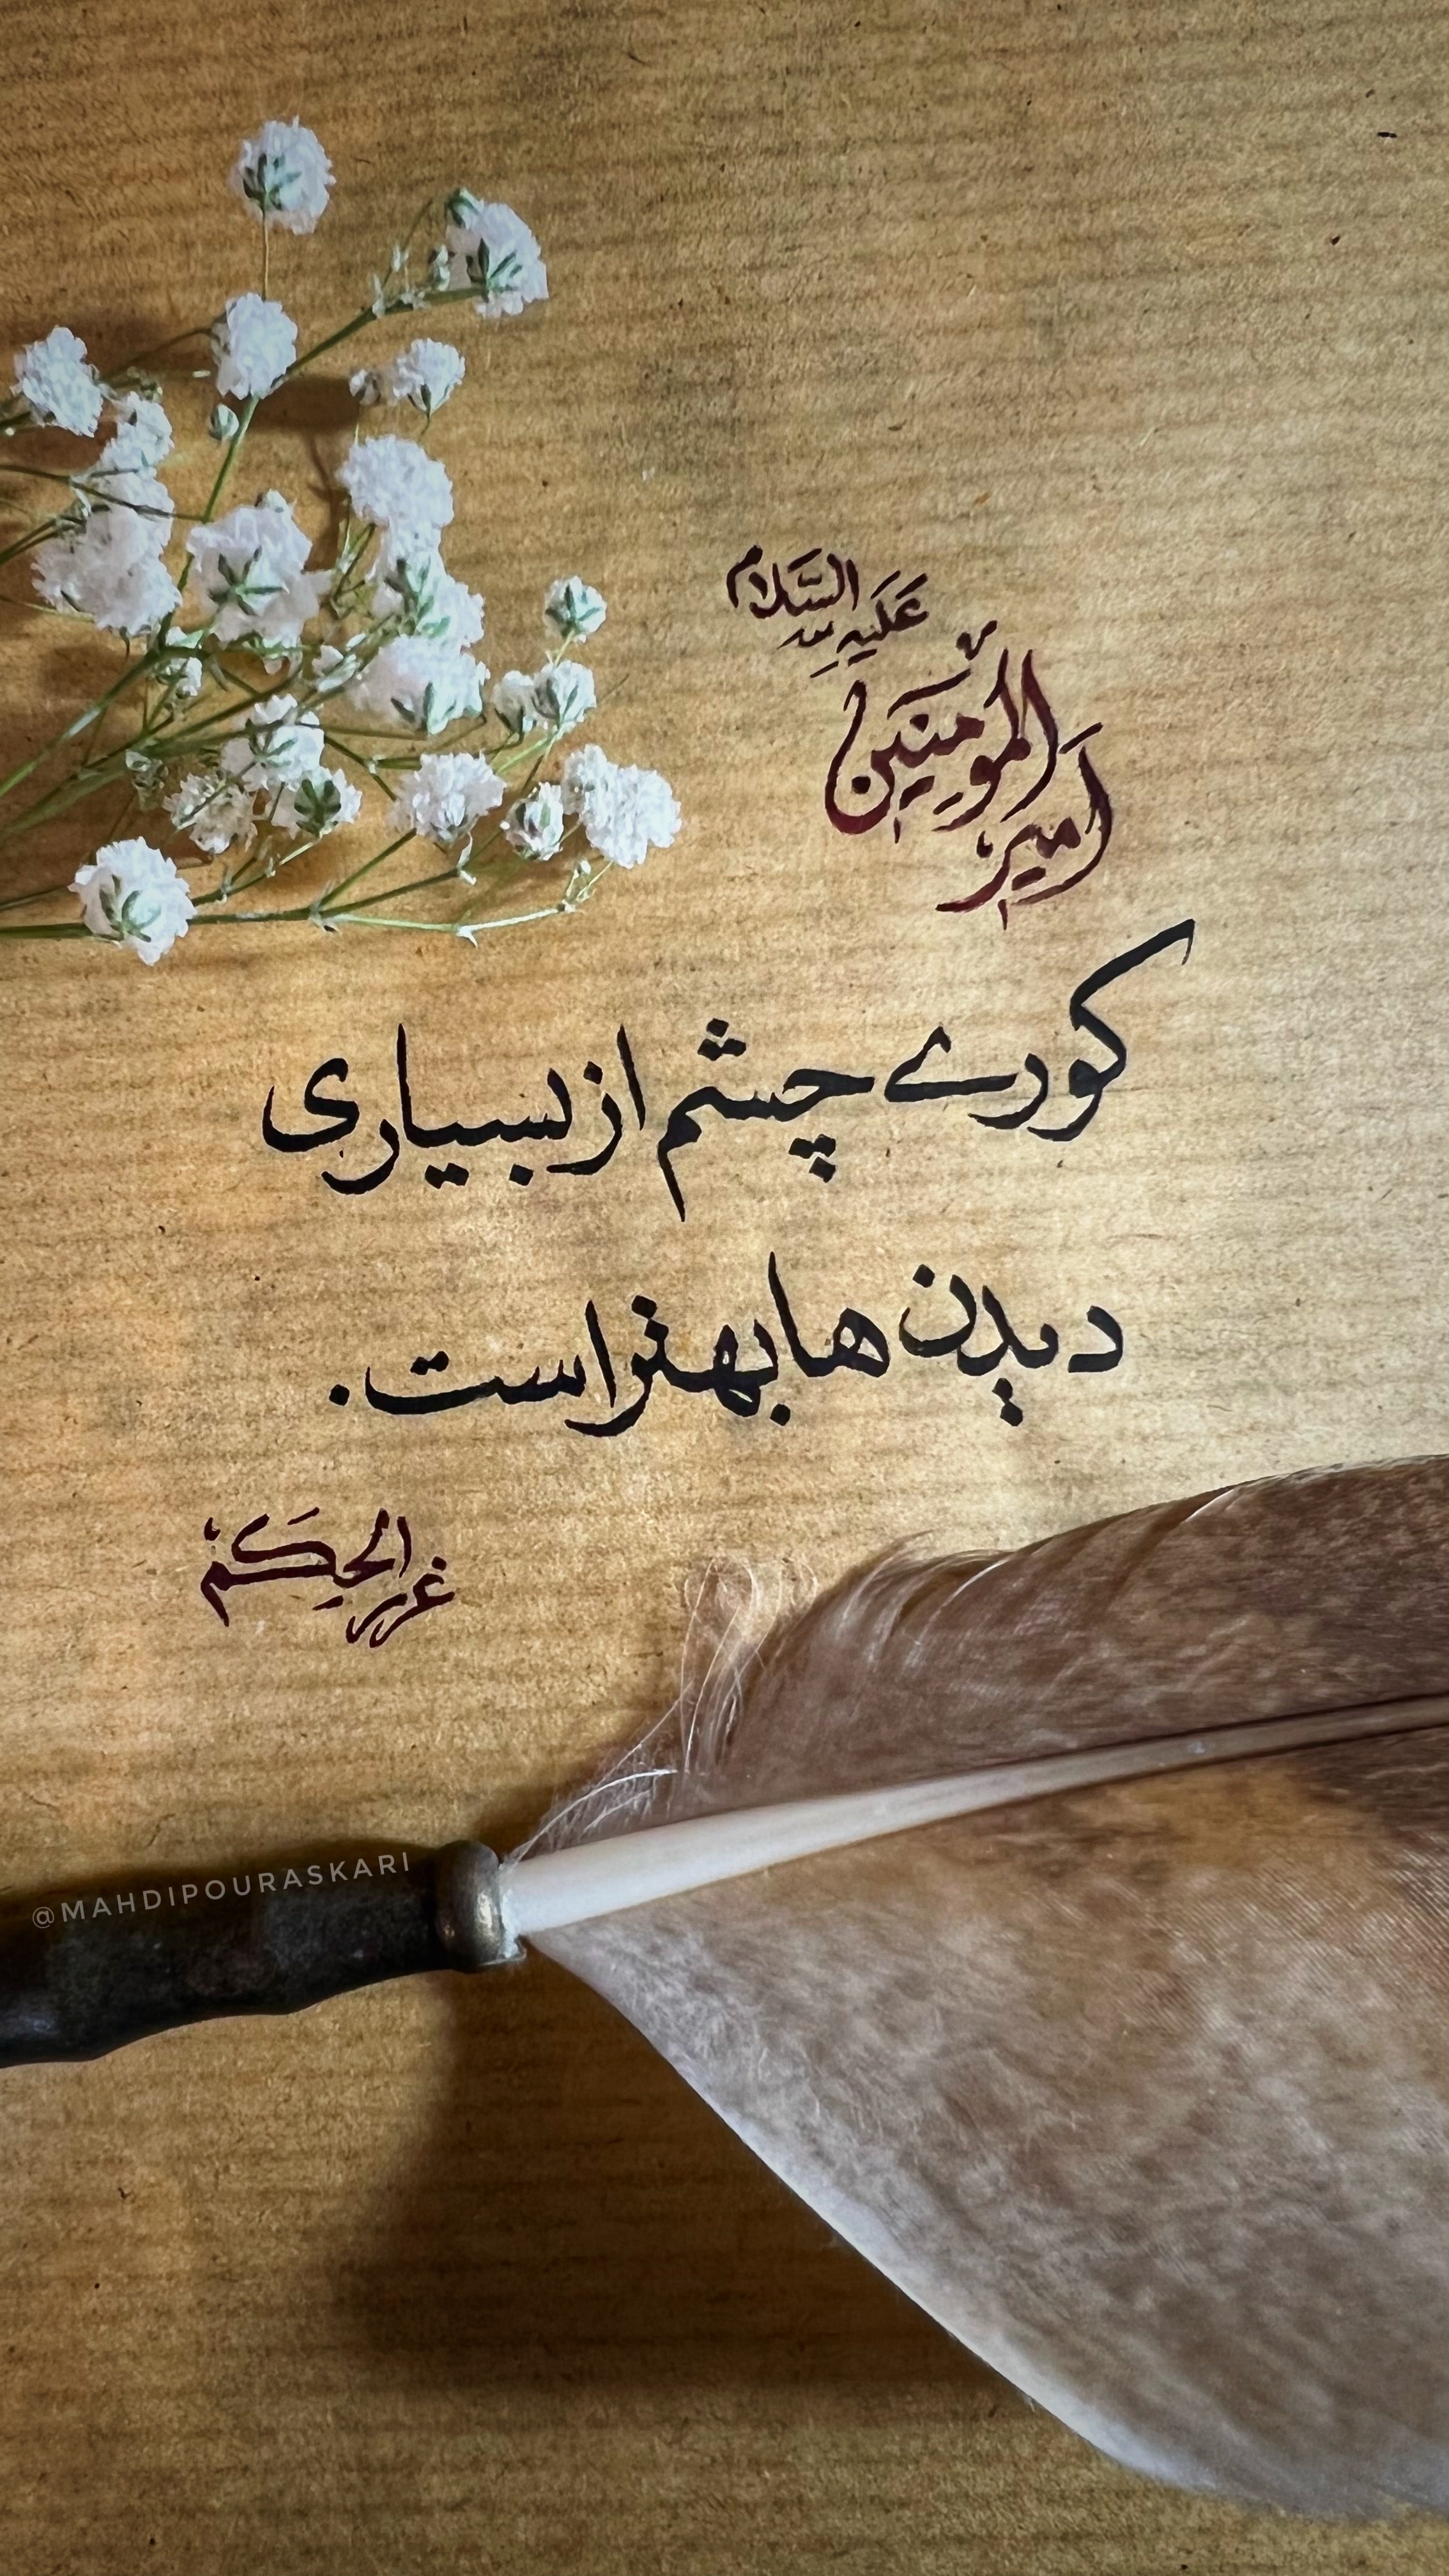 امیر المؤمنین
علیه السلام
کوری چشم از بسیاری
دیدن ها بهتر است.
غرر الحکم
@MAHDIPOURASKARI